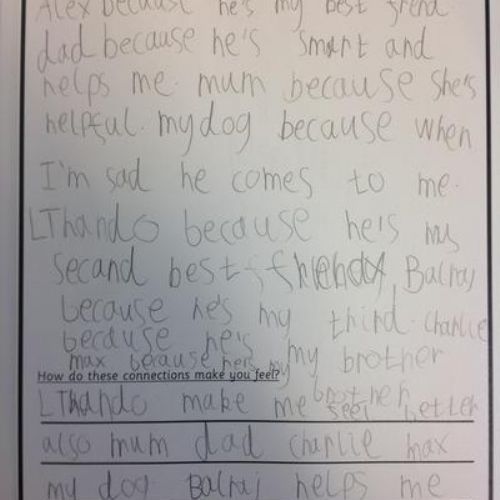 Alex because he's my best frend
dad because he's smart and
helps me. mum because she's
helpful. my dog because when
I'm sad he comes to me.
LThando because he's my
secand best friend Balraj
because he's my third. charlie
because he's my brother
max because he's my brother
How do these connections make you feel?
LThando make me feel better
also mum dad charlie max
my dog Balraj helps me